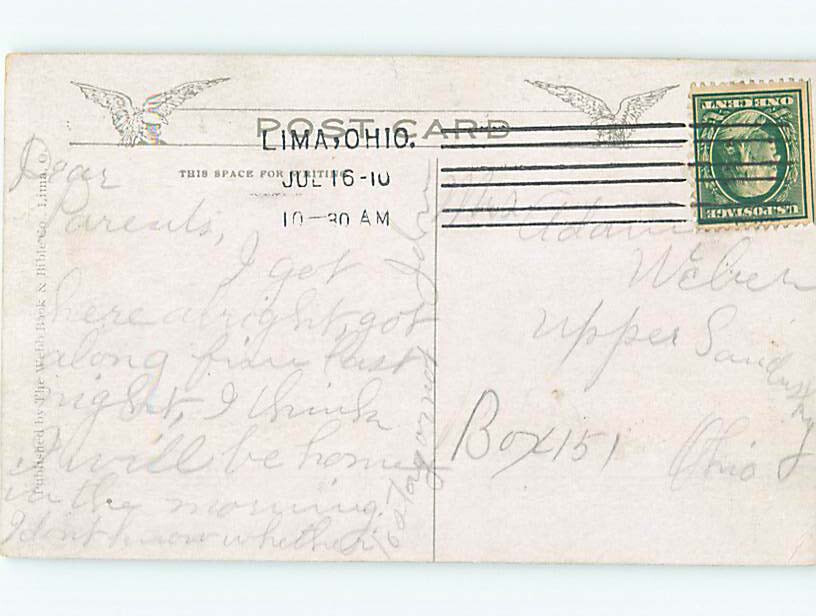 POST CARD
LIMA, OHIO.
JUL 16-10
10-30 AM
THIS SPACE FOR WRITING
ONE CENT
U.S. POSTAGE
Published by The Webb Book & Bible Co., Lima, O.
Dear
Parents,
I got
here alright, got
along fine last
night, I think
I will be home
in the morning.
I don't know whether
to stay or not
John
Mrs
Adam
Weber
Upper Sandusky
Box 151
Ohio